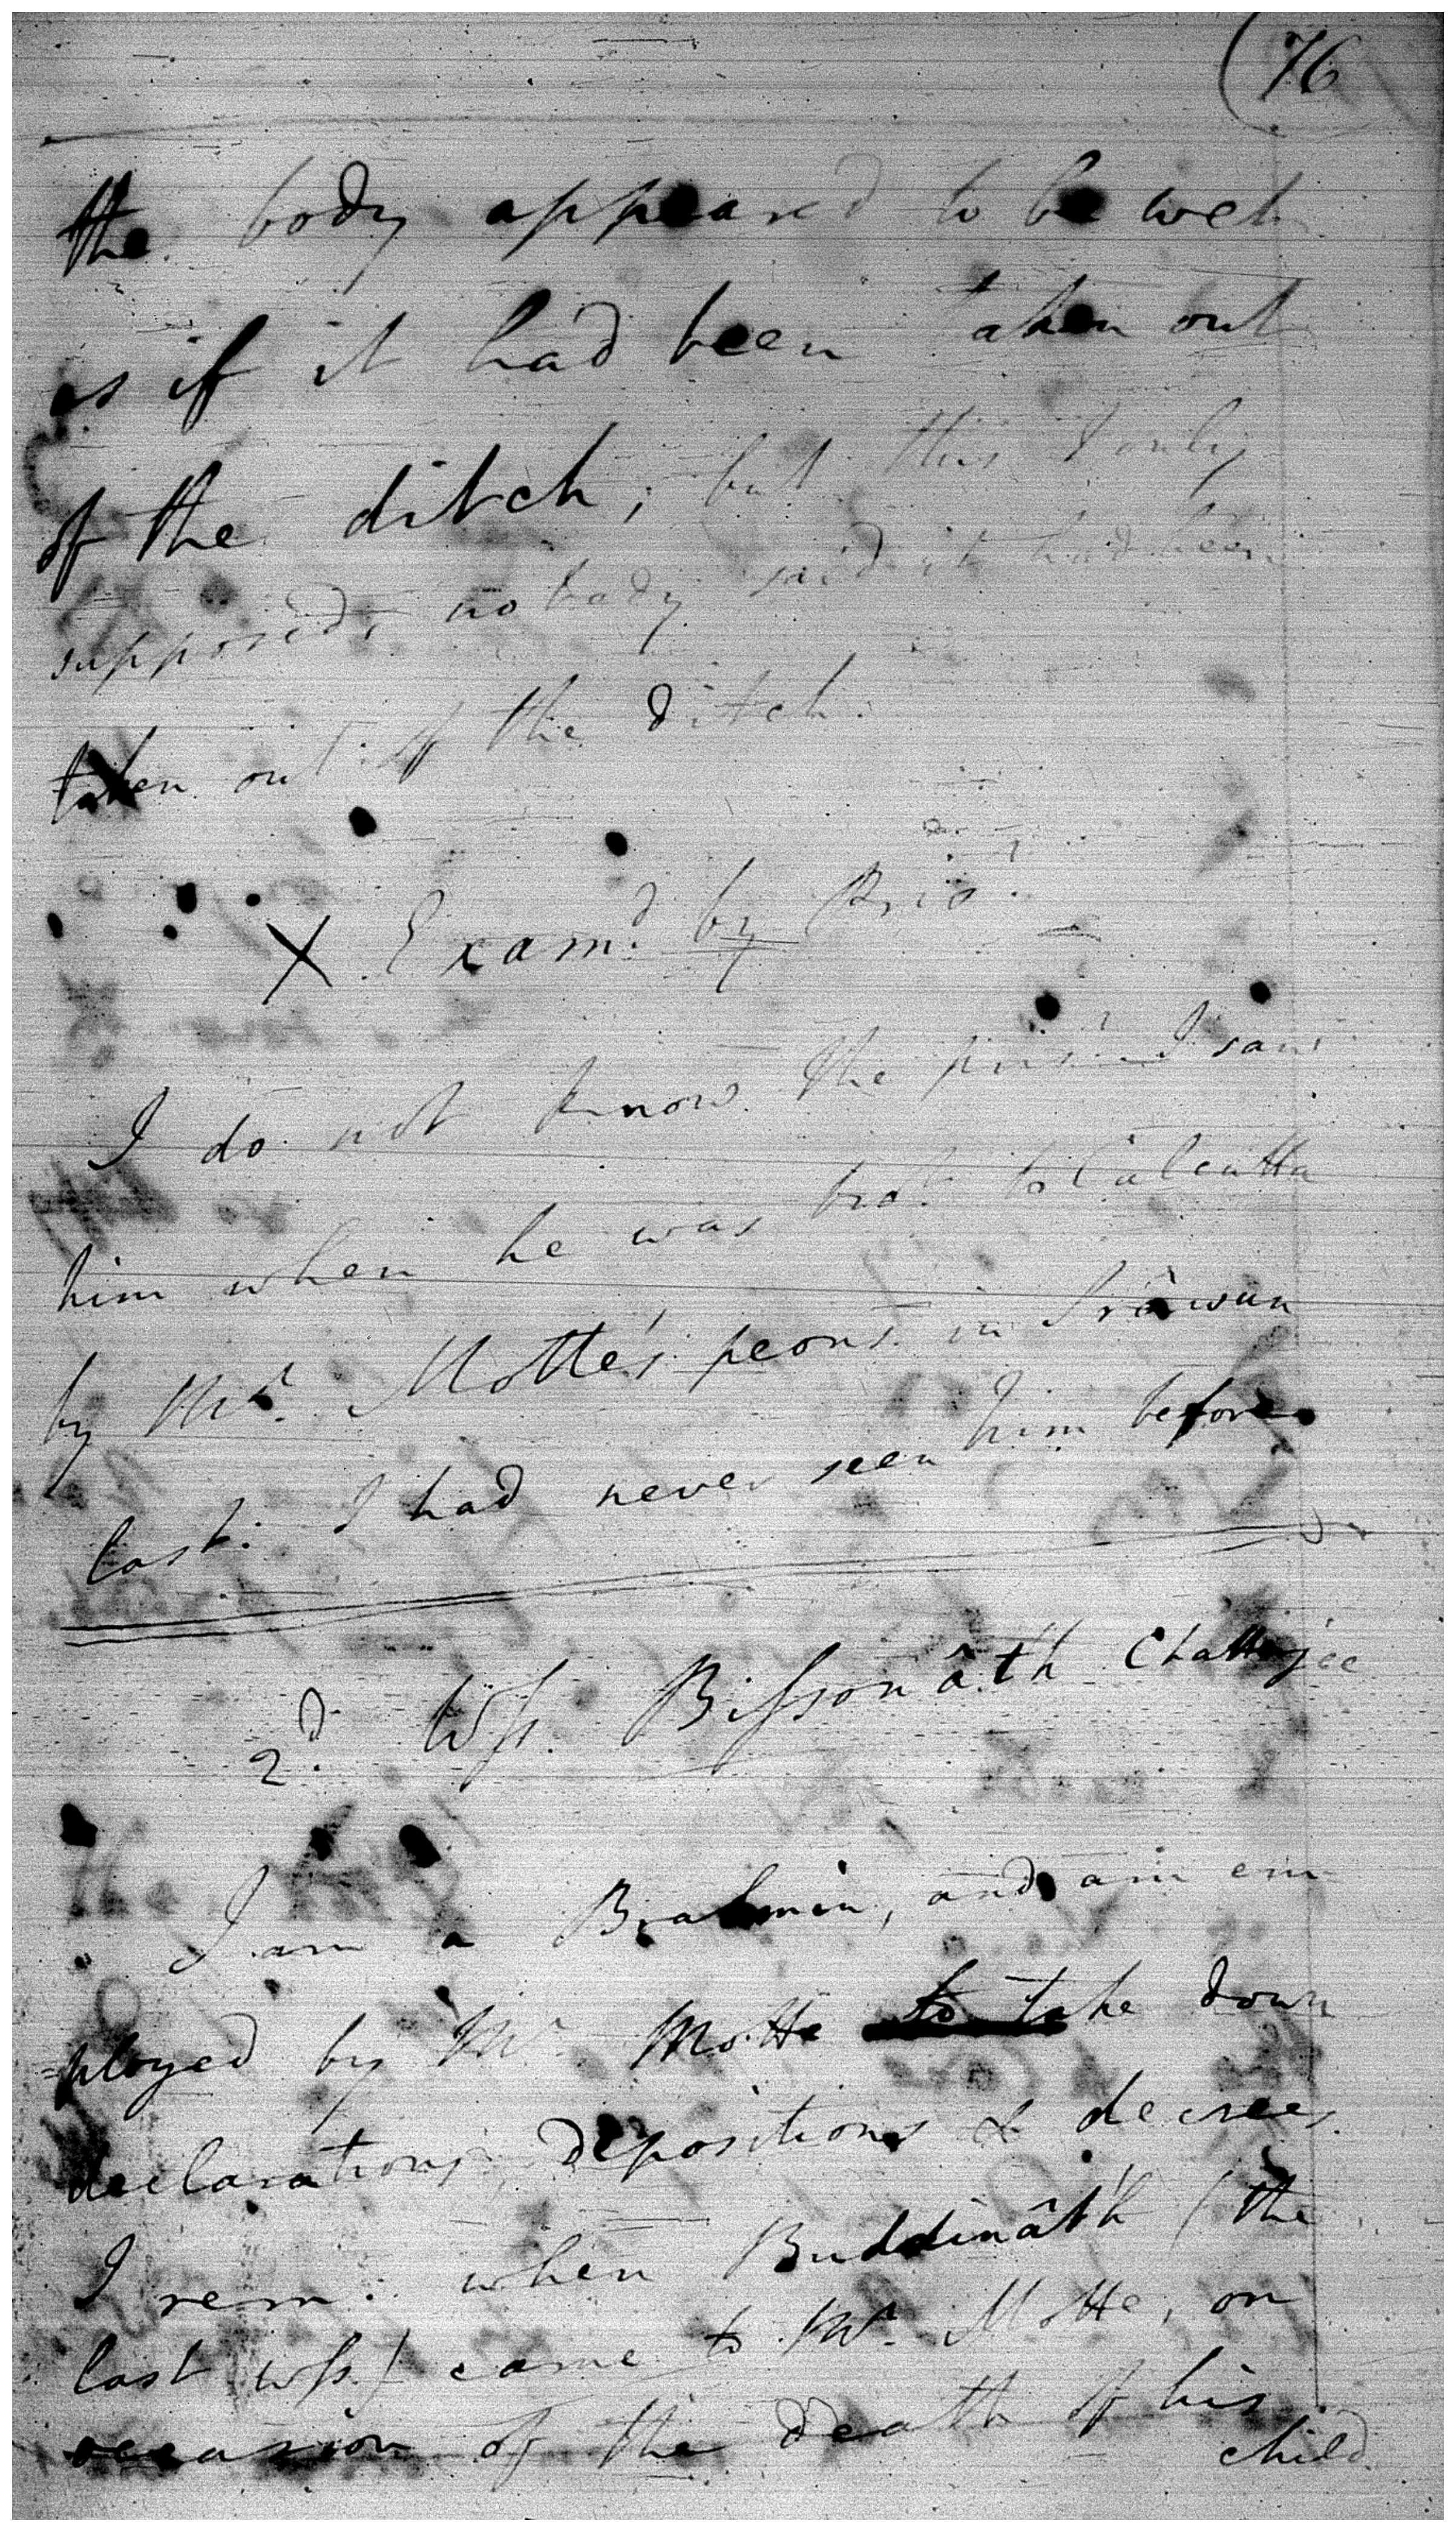 (76
the body appeared to be wet
as if it had been taken out
of the ditch; but this I only
supposed, nobody said it had been
taken out of the ditch.
X Exam.d by Pris.r
I do not know the pris.r I saw
him when he was bro.t to Calcutta
by Mr. Motte's peons in Srâwun
last. I had never seen him before
2.d Wss. Bissonâth Chatterjee
I am a Brahmin, and am em-
-ployed by Mr. Motte to take down
declarations depositions & decrees
I rem. when Buddinâth (the
last wss.) came to Mr. Motte, on
occasion of the death of his
child